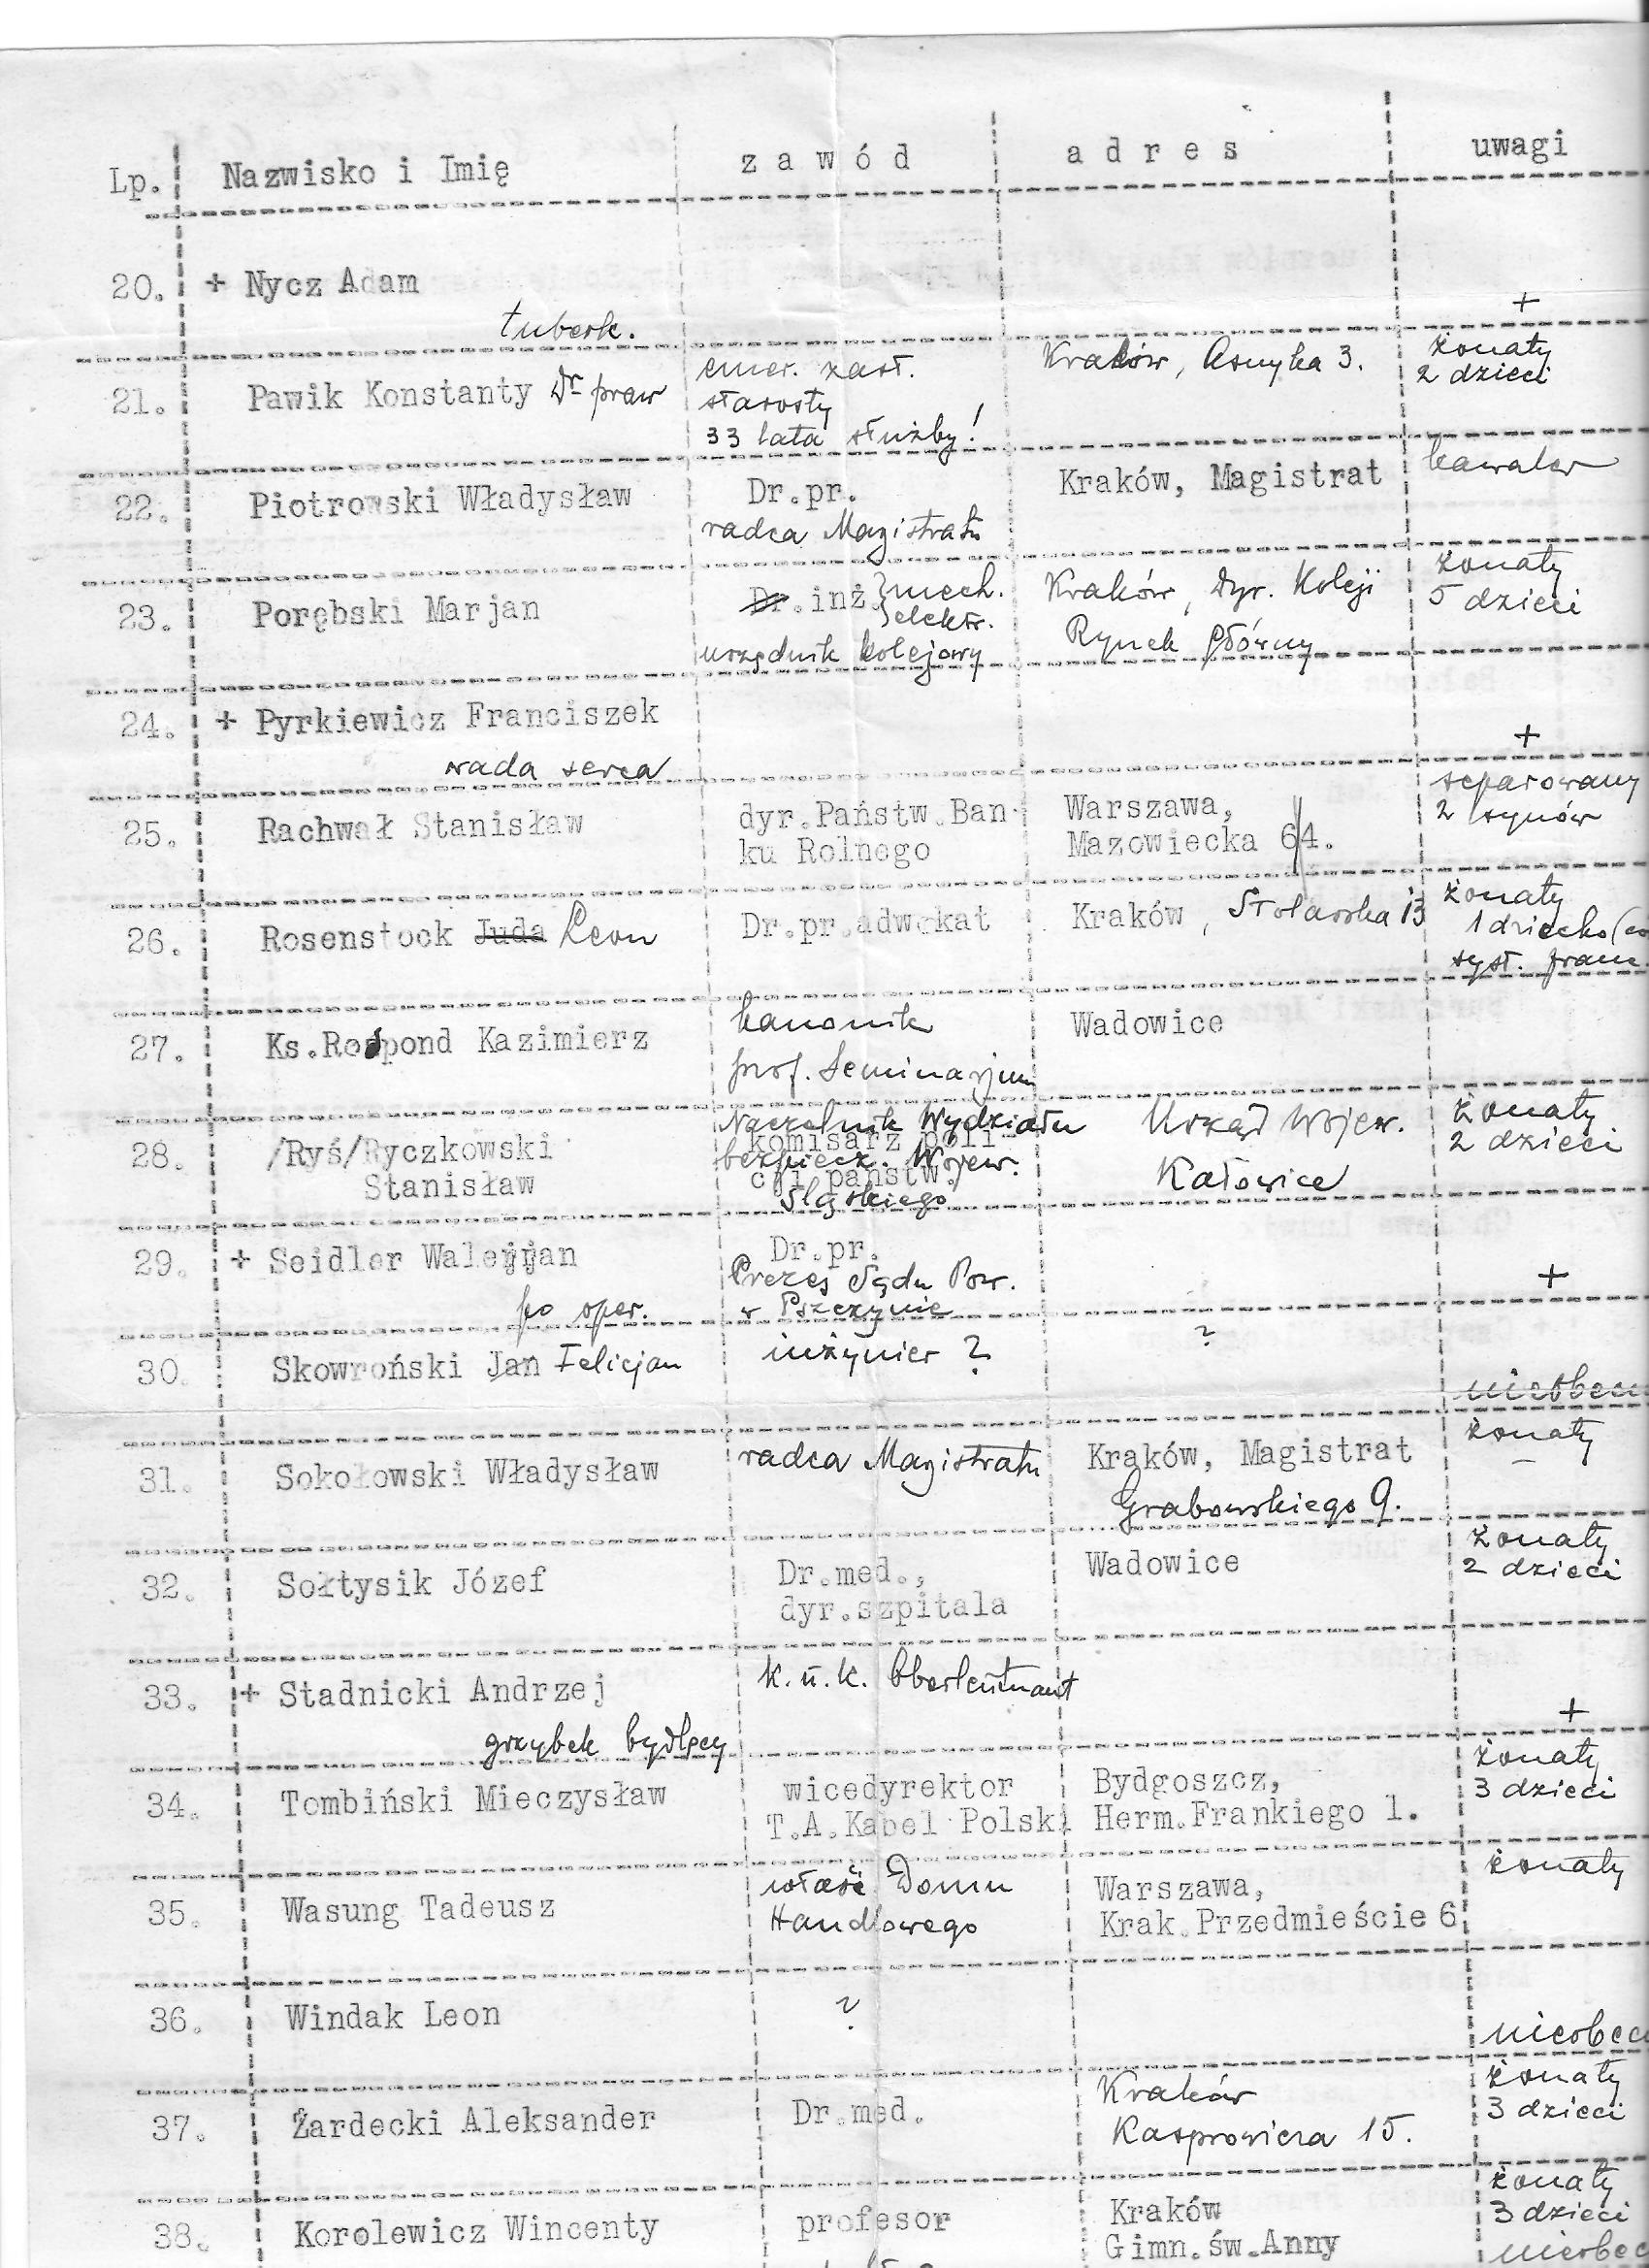 Lp. Nazwisko i Imię zawód adres uwagi
20. + Nycz Adam
tuberk. +
21. Pawik Konstanty Dr praw emer. zast. starosty Kraków, Asnyka 3. żonaty
33 lata służby! 2 dzieci
22. Piotrowski Władysław Dr.pr. Kraków, Magistrat kawaler
radca Magistratu
23. Porębski Marjan Dr.inż. mech. Kraków, Dyr. Koleji żonaty
elektr. 5 dzieci
urzędnik kolejowy Rynek główny
24. + Pyrkiewicz Franciszek
wada serca +
25. Rachwał Stanisław dyr.Państw.Ban- Warszawa, separowany
ku Rolnego Mazowiecka 6/4. 2 synów
26. Rosenstock Juda Leon Dr.pr.adwokat Kraków, Stolarska 13 żonaty
1 dziecko
syst. franc.
27. Ks.Rospond Kazimierz kanonik Wadowice
prof. Seminarjum
28. /Ryś/Ryczkowski Naczelnik Wydziału Urząd Wojew. żonaty
komisarz poli-
bezpiecz. Wojew. 2 dzieci
Stanisław cji państw. Katowice
Śląskiego
29. + Seidler Walerjan Dr.pr.
Prezes Sądu Pow. +
po oper. w Pszczynie
30. Skowroński Jan Felicjan inżynier ? ?
nieobecn
31. Sokołowski Władysław radca Magistratu Kraków, Magistrat żonaty
Grabowskiego 9. –
32. Sołtysik Józef Dr.med., Wadowice żonaty
dyr.szpitala 2 dzieci
33. + Stadnicki Andrzej k.u.k. Oberleutnant
grzybek bydlęcy +
34. Tombiński Mieczysław wicedyrektor Bydgoszcz, żonaty
T.A.Kabel Polski Herm.Frankiego 1. 3 dzieci
35. Wasung Tadeusz właśc. Domu Warszawa, żonaty
Handlowego Krak.Przedmieście 6
36. Windak Leon ?
nieobec
37. Żardecki Aleksander Dr.med. Kraków żonaty
Kasprowicza 15. 3 dzieci
38. Korolewicz Wincenty profesor Kraków żonaty
Gimn.św.Anny 3 dzieci
nieobec